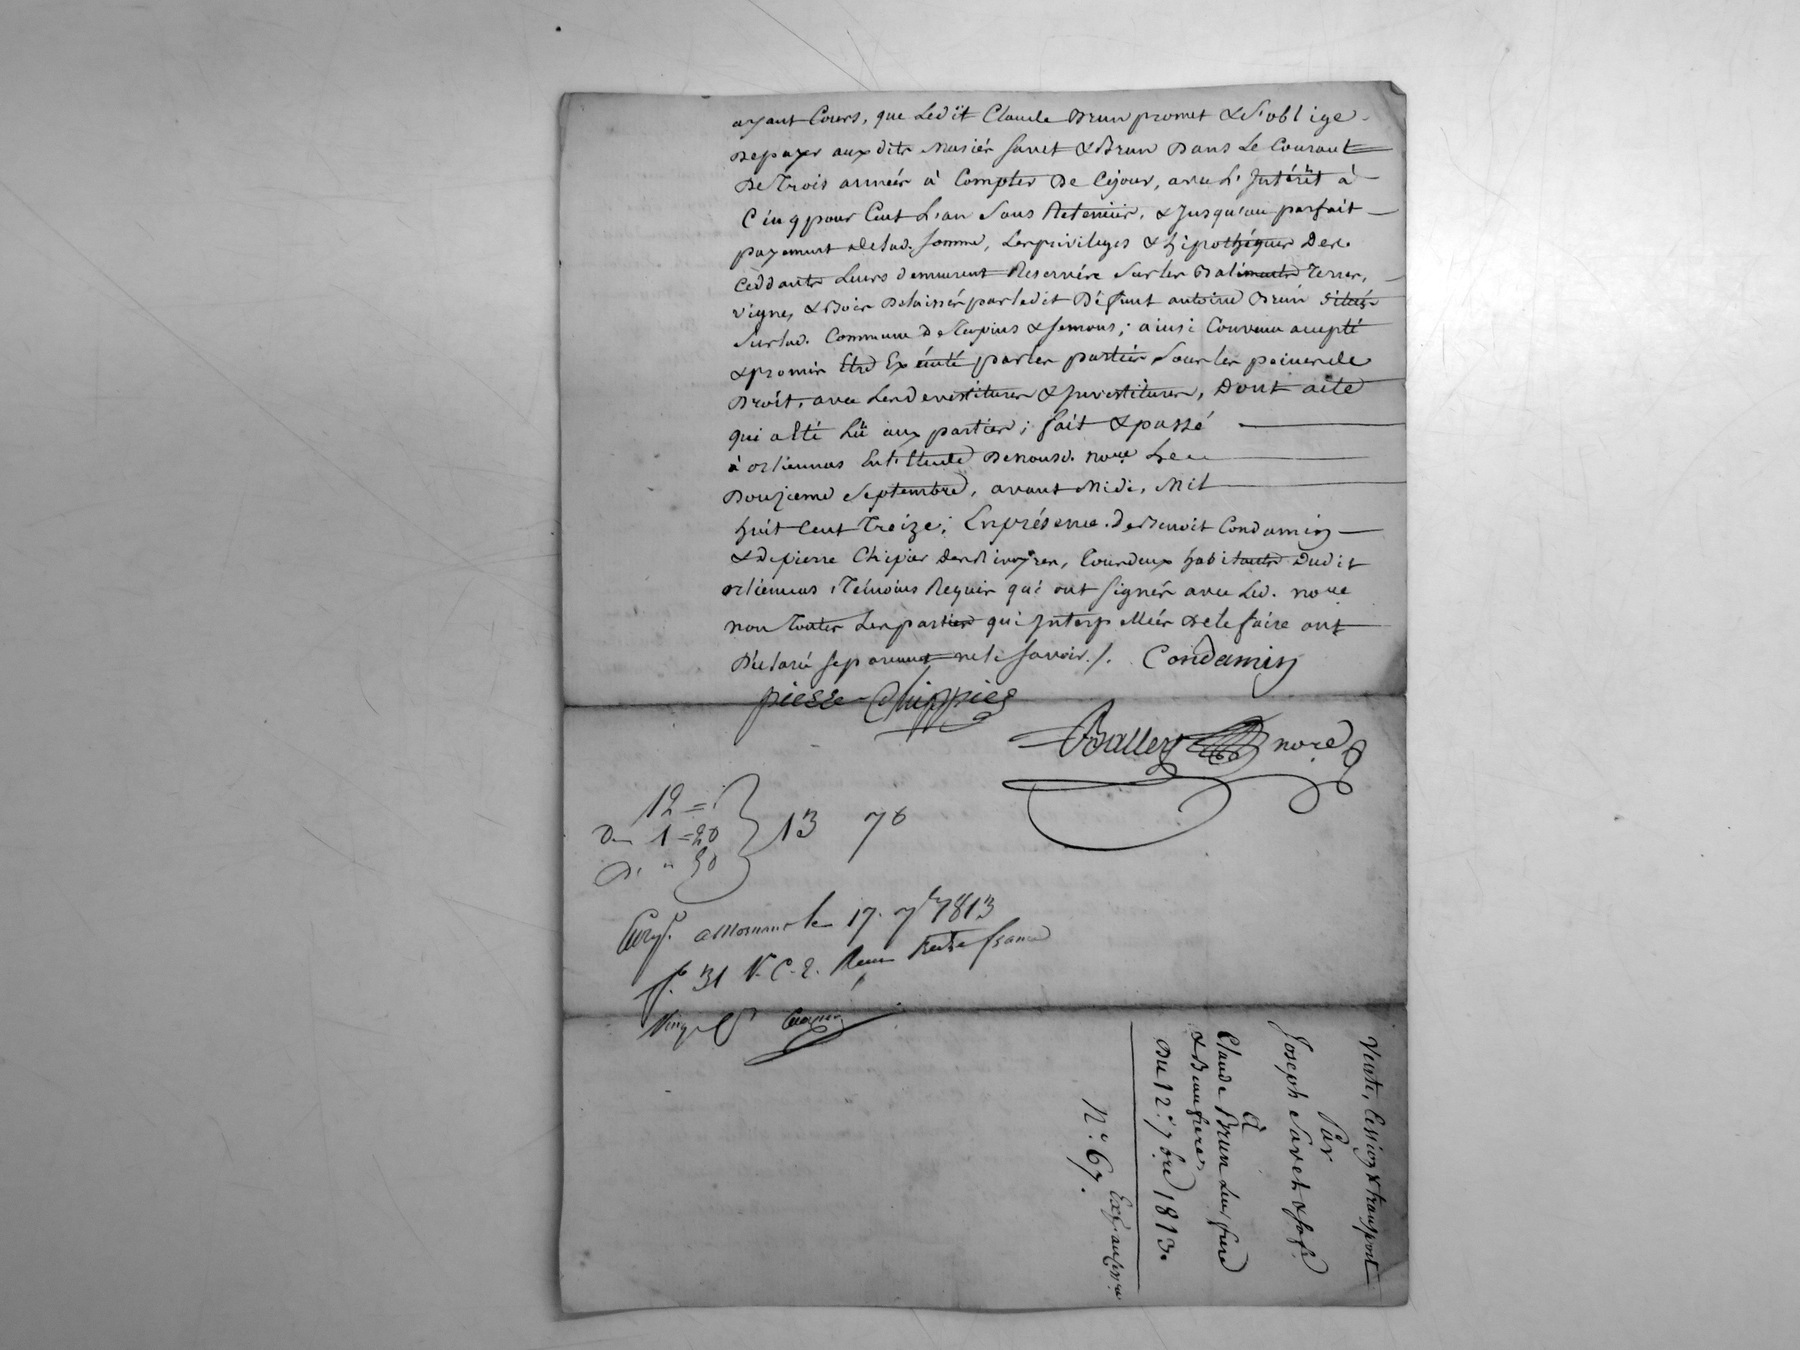 ayant Cours, que Ledit Claude Brun promet & s'oblige
De payer aux dits mariés Savet & Brun Dans Le Courant
De Trois années à Compter De Cejour, avec L'Intérêt à
Cinq pour Cent L'an Sans Retenüe, & Jusqu'au parfait
payement de lad. somme, Les privileges & hipothéques Des
Ceddants Leurs demeurent Reservées Sur les Batiments Terres,
vigne, & Bois Delaissés par ledit Défunt antoine Brun Situés
Sur lad. Commune De & ; ainsi Convenu accepté
& promis Etre Exécuté par les parties Sous les peines de
Droit, avec Les devestitures & Investitures, Dont acte
qui a été Lü aux parties ; fait & passé
à orliennas En L'Etude De nousd. nore Le
Douzieme Septembre, avant Midi, Mil
huit Cent Treize ; En présence de Benoit Condamin
& de pierre Chipier , Tous deux habitants Dudit
orliennas Témoins Requis qui ont Signés avec Led. nore
non Toutes Les parties qui Interpellées de le faire ont
Déclaré separement ne le Savoir ./. Condamin
pierre Chippier
Ballez nore
12 =
1 = 20
50
13 70
Enrg. a Mornant le 17. 7bre 1813
f. 31 V. C. 2. Recu Trente francs
Vente, Cession & transport
Par
Joseph Savet & sa fe.
à
Claude Brun Leur frere
& Beaufrere,
Du 12. 7bre 1813.
N.º 67.